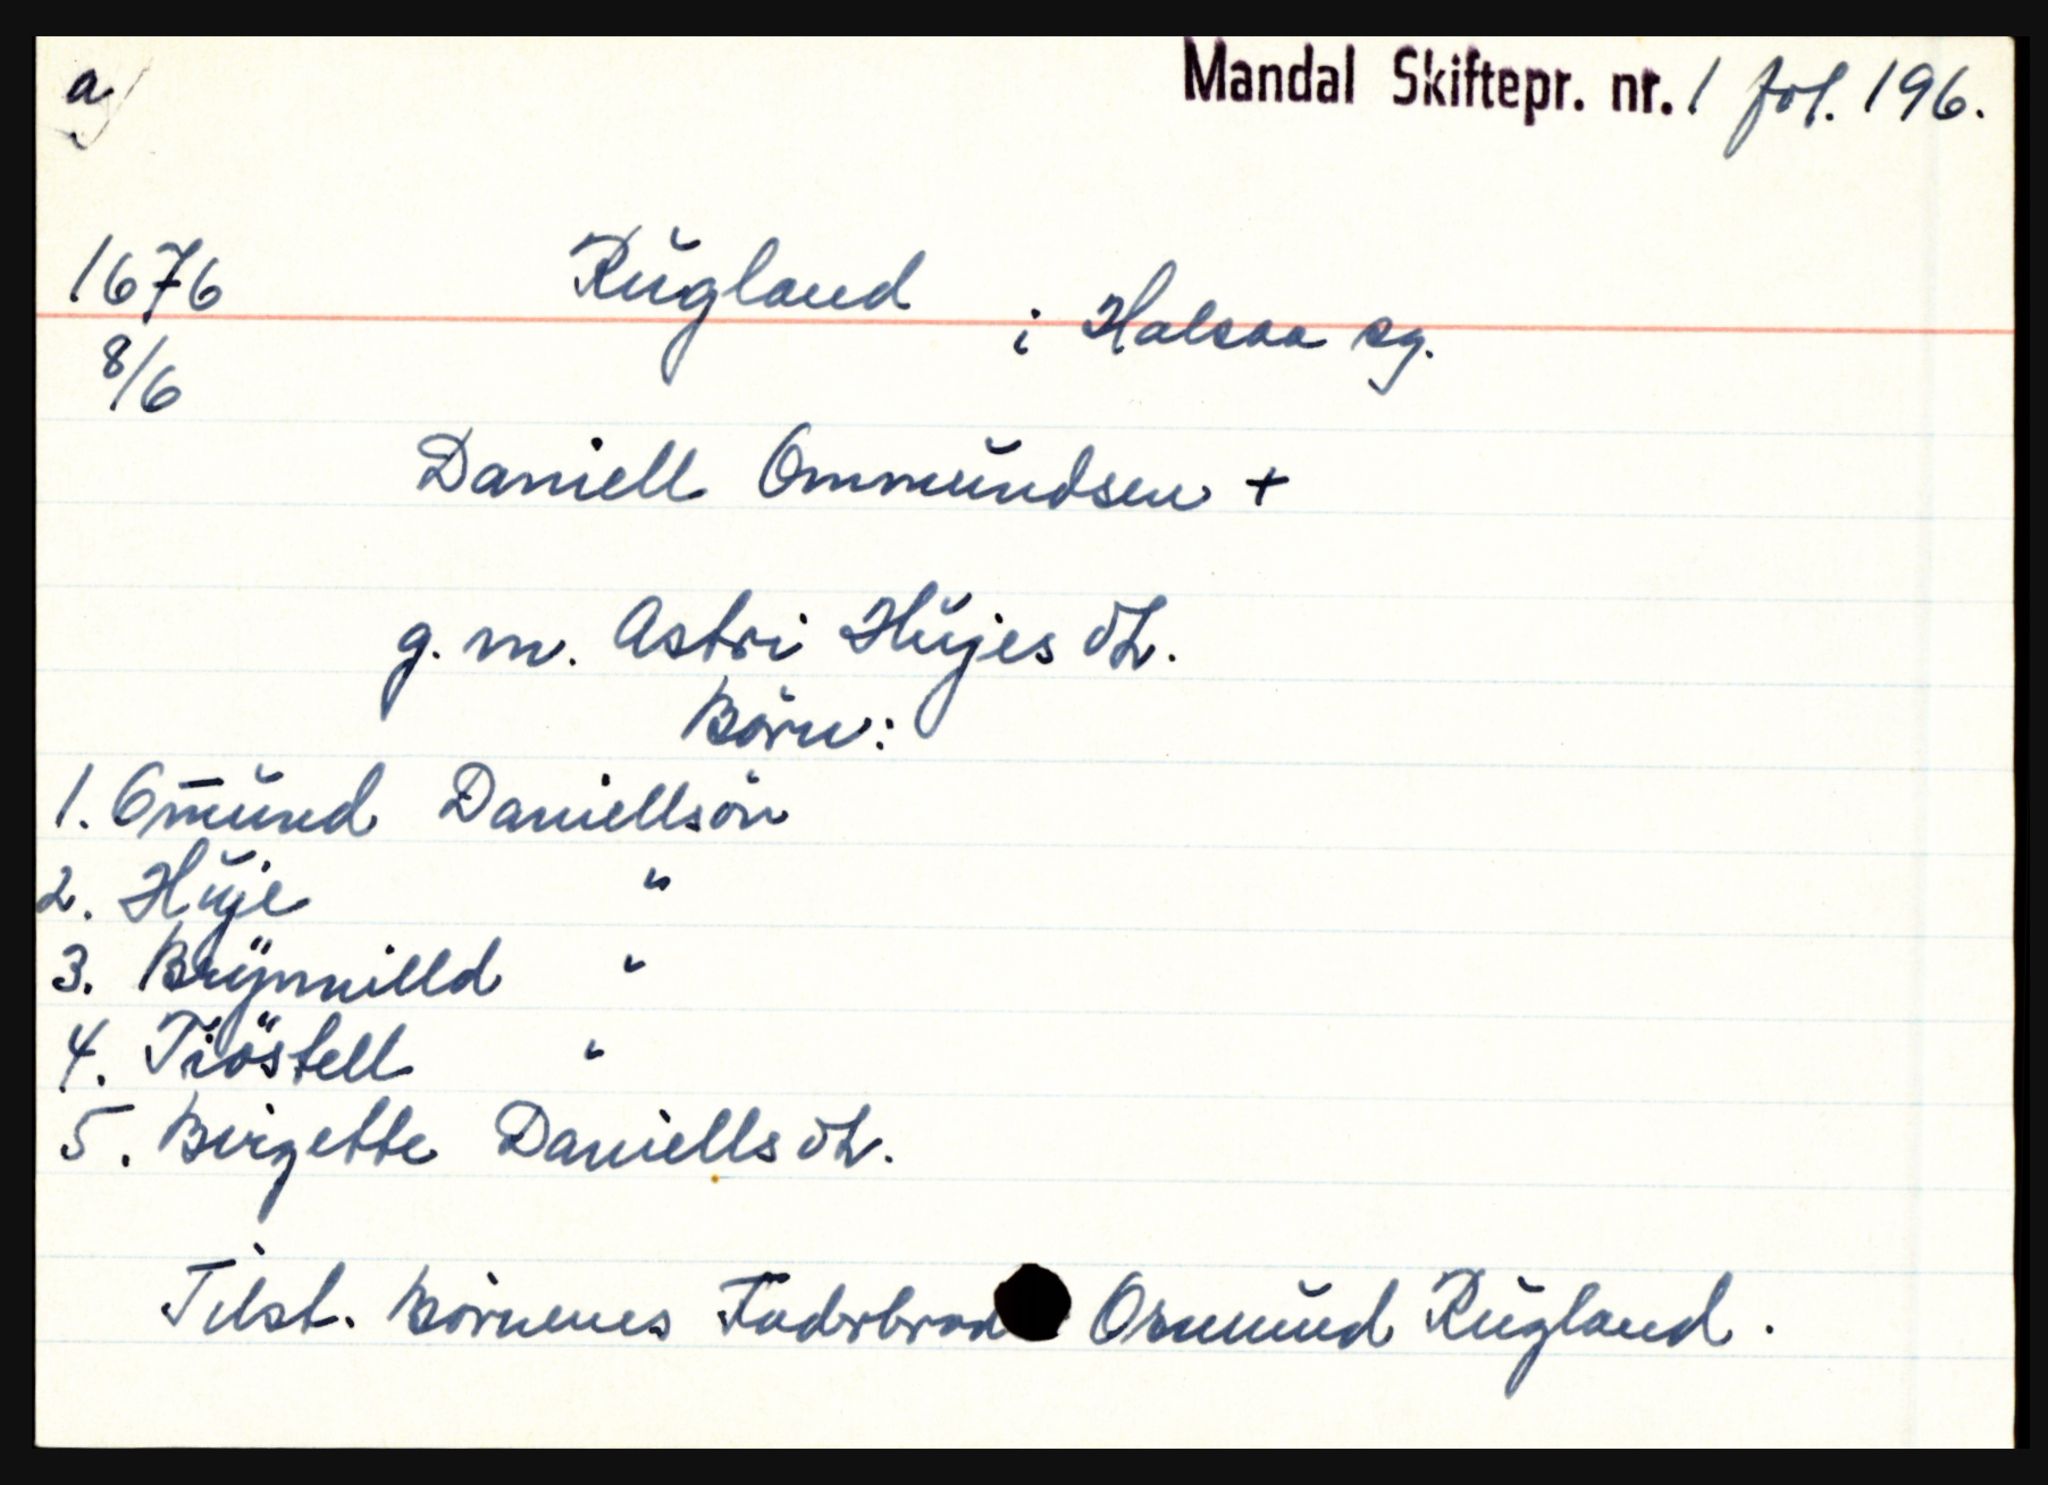 a
Mandal Skiftepr. nr. 1 fol. 196.
1676
8/6
Rŭgland i Halsaa sg.
Daniell Ommŭndsen +
g. m. Astri Hŭjes dt.
Børn:
1. Om̄ŭnd Daniellsøn
2. Hŭje "
3. Brÿnnilld "
4. Tiöstell "
5. Birgette Daniells dt.
Tilst. Børnenes Faderbrod Osmŭnd Rŭgland.